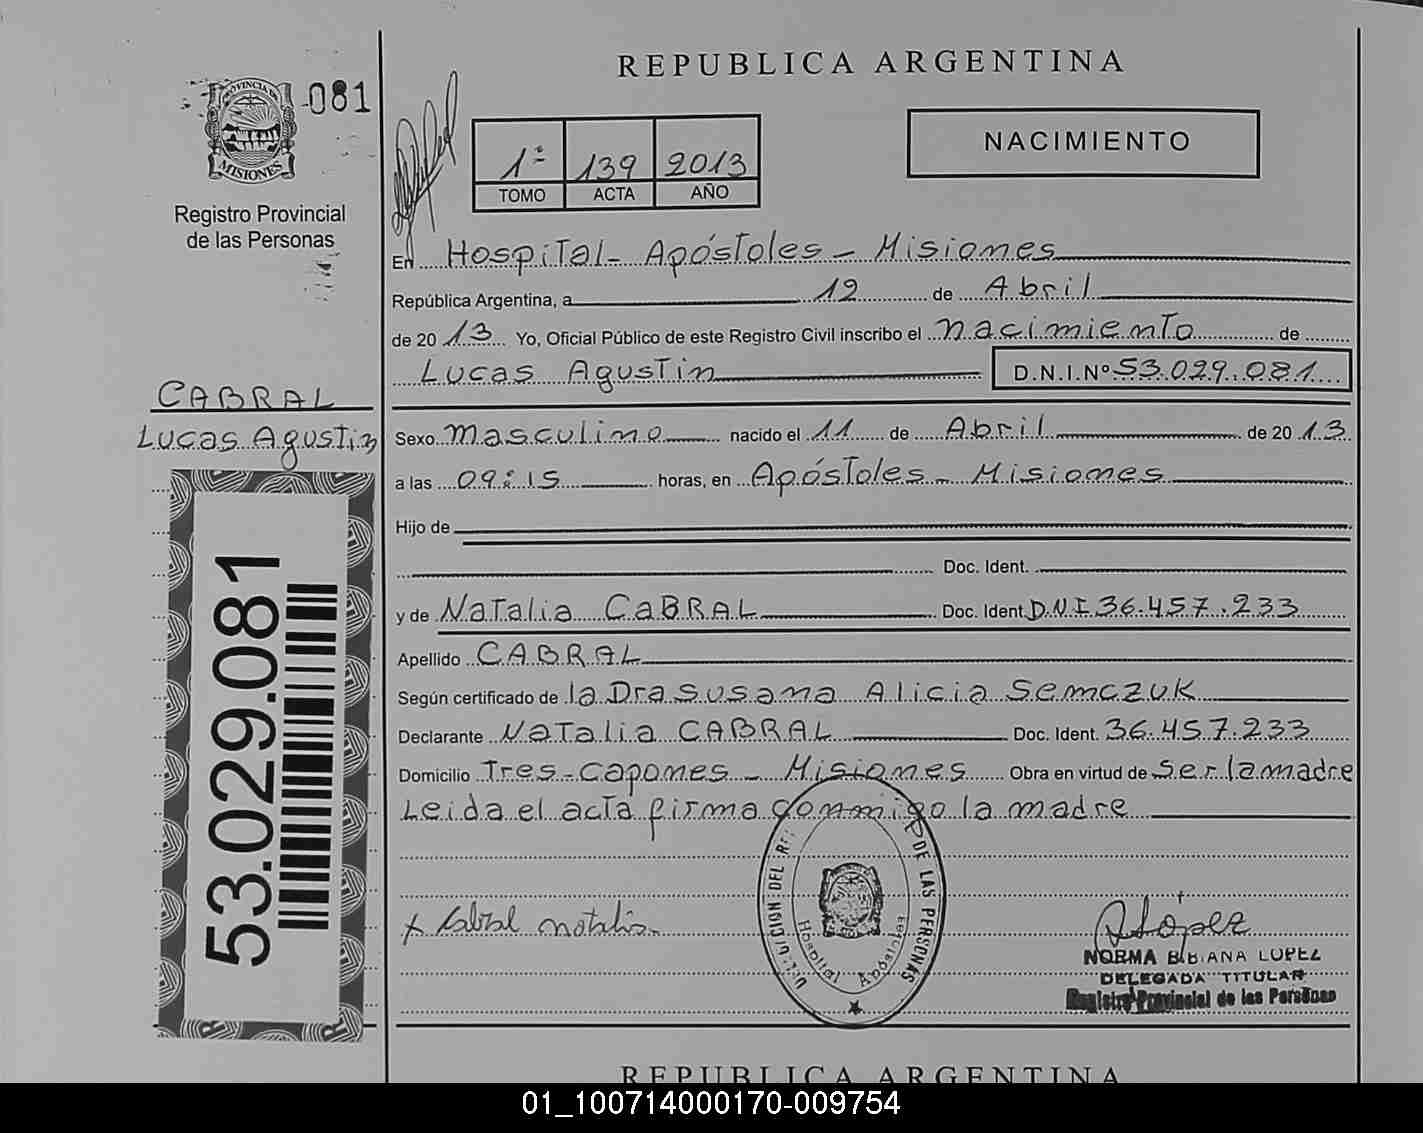 REPUBLICA ARGENTINA
PROVINCIA DE
MISIONES
081
Registro Provincial
de las Personas
1ª 139 2013
TOMO ACTA AÑO
NACIMIENTO
En Hospital - Apóstoles - Misiones
República Argentina, a 12 de Abril
de 2013 Yo, Oficial Público de este Registro Civil inscribo el nacimiento de
Lucas Agustin D.N.I.Nº 53.029.081
CABRAL
Lucas Agustin
Sexo masculino nacido el 11 de Abril de 2013
a las 09:15 horas, en Apóstoles - Misiones
Hijo de
Doc. Ident.
y de Natalia CABRAL Doc. Ident. DNI 36.457.233
Apellido CABRAL
Según certificado de la Dra Susana Alicia Semczuk
Declarante Natalia CABRAL Doc. Ident. 36.457.233
Domicilio Tres - capones - Misiones Obra en virtud de ser la madre
Leida el acta firma conmigo la madre
53.029.081
x Cabral natalia
DEL DE LAS PERSONAS
Hospital Apóstoles
López
NORMA BIBIANA LOPEZ
DELEGADA TITULAR
Registro Provincial de las Personas
REPUBLICA ARGENTINA
01_100714000170-009754